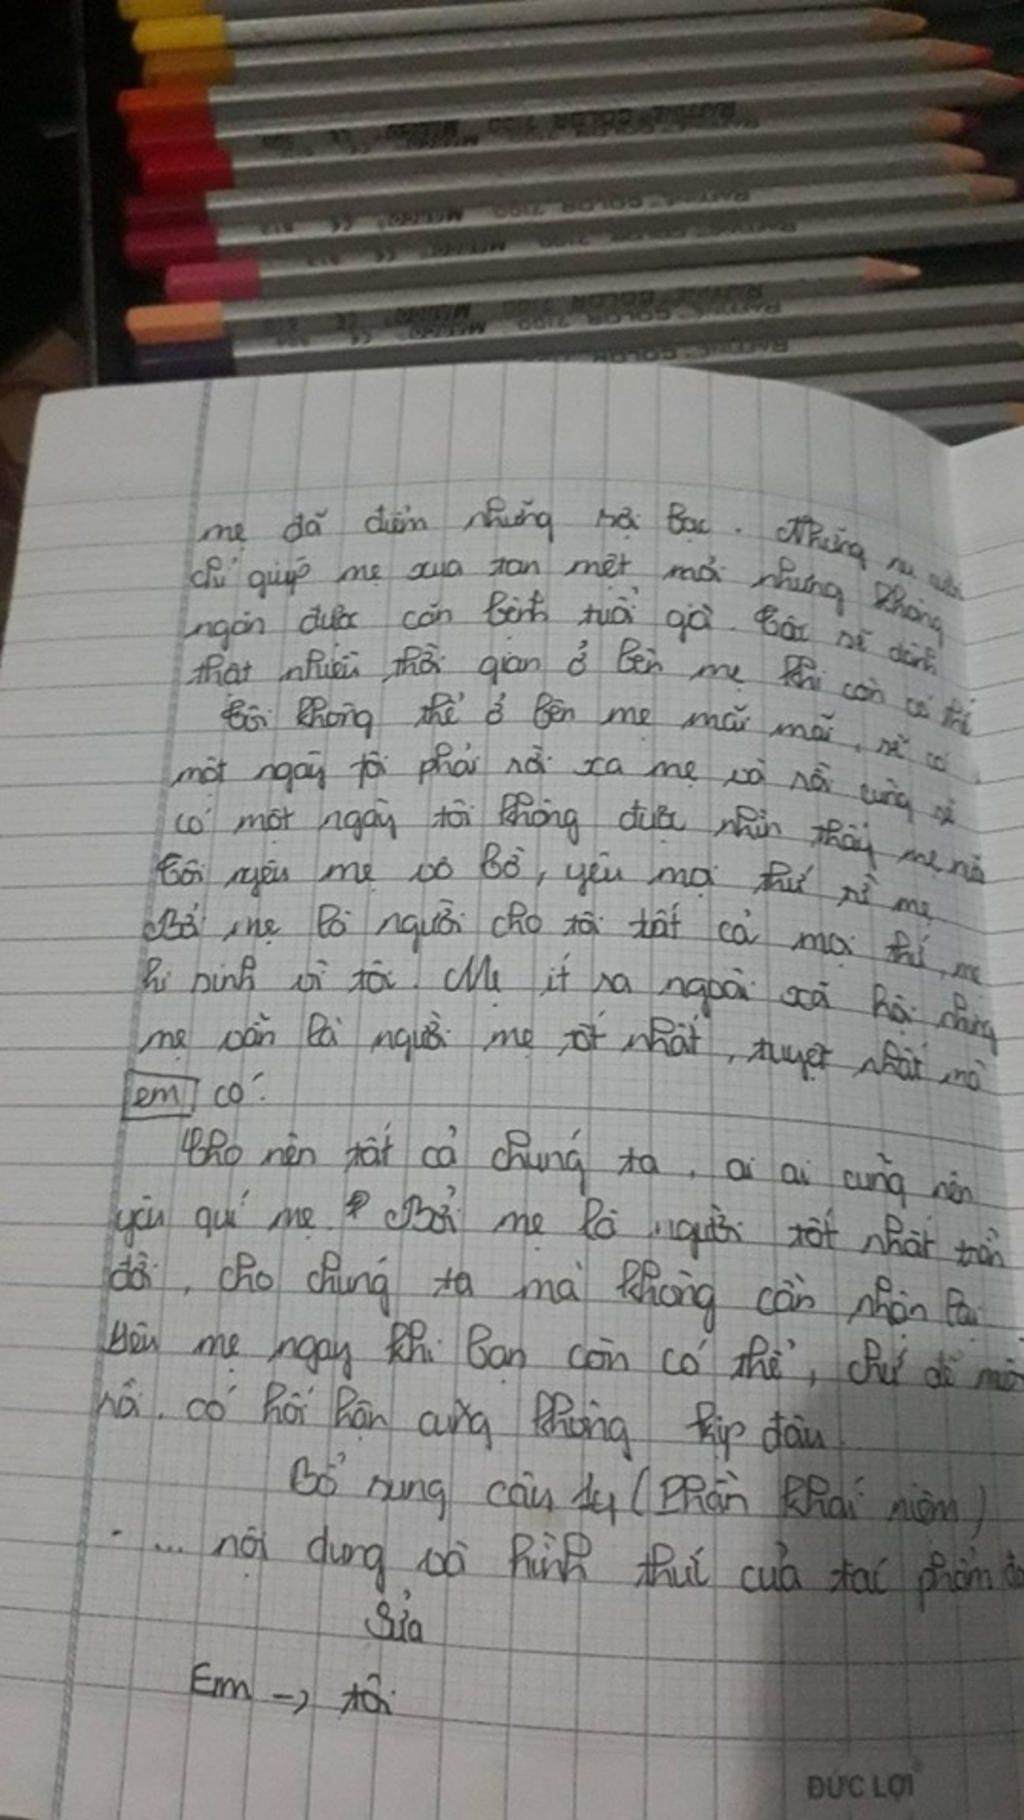 RAFFINÉ COLOR 7100 MARCO
mẹ đã điểm những sợi bạc. Những nụ
chỉ giúp mẹ xua tan mệt mỏi nhưng không
ngăn được căn bệnh tuổi già. Tôi sẽ dành
thật nhiều thời gian ở bên mẹ khi còn có thể
Tôi không thể ở bên mẹ mãi mãi, sẽ có
một ngày tôi phải rời xa mẹ và rồi cũng sẽ
có một ngày tôi không được nhìn thấy mẹ nữa
Tôi yêu mẹ vô bờ, yêu mọi thứ về mẹ
Bởi mẹ là người cho tôi tất cả mọi thứ, mẹ
hi sinh vì tôi. Mẹ ít ra ngoài xã hội nhưng
mẹ vẫn là người mẹ tốt nhất, tuyệt nhất mà
em có.
Cho nên tất cả chúng ta, ai ai cũng nên
yêu quí mẹ. Bởi mẹ là người tốt nhất trần
đời, cho chúng ta mà không cần nhận lại
Yêu mẹ ngay khi bạn còn có thể, chứ để mồ
hôi, có hối hận cũng không kịp đâu
Bổ sung câu (Phần khái niệm)
- ... nội dung và hình thức của tác phẩm đó
Sửa
Em -> tôi
ĐỨC LỢI